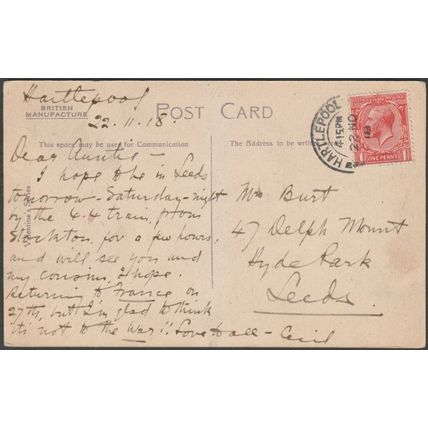 Hartlepool
BRITISH
MANUFACTURE
22.11.18.
POST CARD
This space may be used for Communication
The Address to be wri
HARTLEPOOL
4 15 PM
22 NO
18
ONE PENNY
Dear Auntie -
I hope to be in Leeds
tomorrow - Saturday - night
by the 4.4 train, from
Stockton, for a few hours,
and will see you and
my cousins, I hope.
Returning to France on
27th, but I'm glad to think
it's not to the War!! Love to all - Cecil
Mrs Burt
47 Delph Mount
Hyde Park
Leeds.